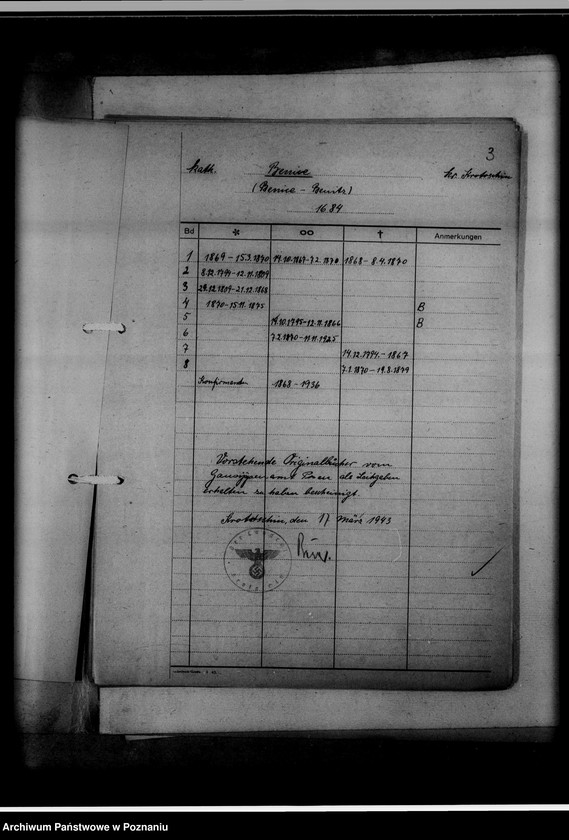 3
kath. Benice Kr. Krotoschin
(Benice - Benitz)
1684
Bd * ∞ † Anmerkungen
1 1869 - 15.3.1870 19.10.1867-7.2.1870 1868 - 8.4.1870
2 8.12.1794-12.11.1819
3 24.12.1819-21.12.1868
4 1870-15.11.1875 B
5 19.10.1795-12.11.1866 B
6 7.2.1870-11.11.1925
7 14.12.1794.-1867
8 7.1.1870 - 19.8.1879
Konfirmanden 1868 - 1936
Vorstehende Originalbücher vom
Gausippenamt Posen als Leihgaben
erhalten zu haben bescheinigt.
Krotoschin, den 17 März 1943
Archiwum Państwowe w Poznaniu